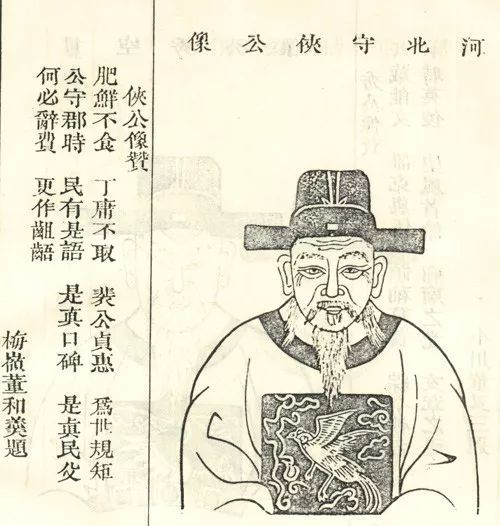 河北守俠公像
俠公像贊
肥鮮不食 丁庸不取 裴公貞惠 爲世規矩
公守郡時 民有是語 是眞口碑 是眞民父
何必辭費 更作齟齬
梅嶺董和羹題